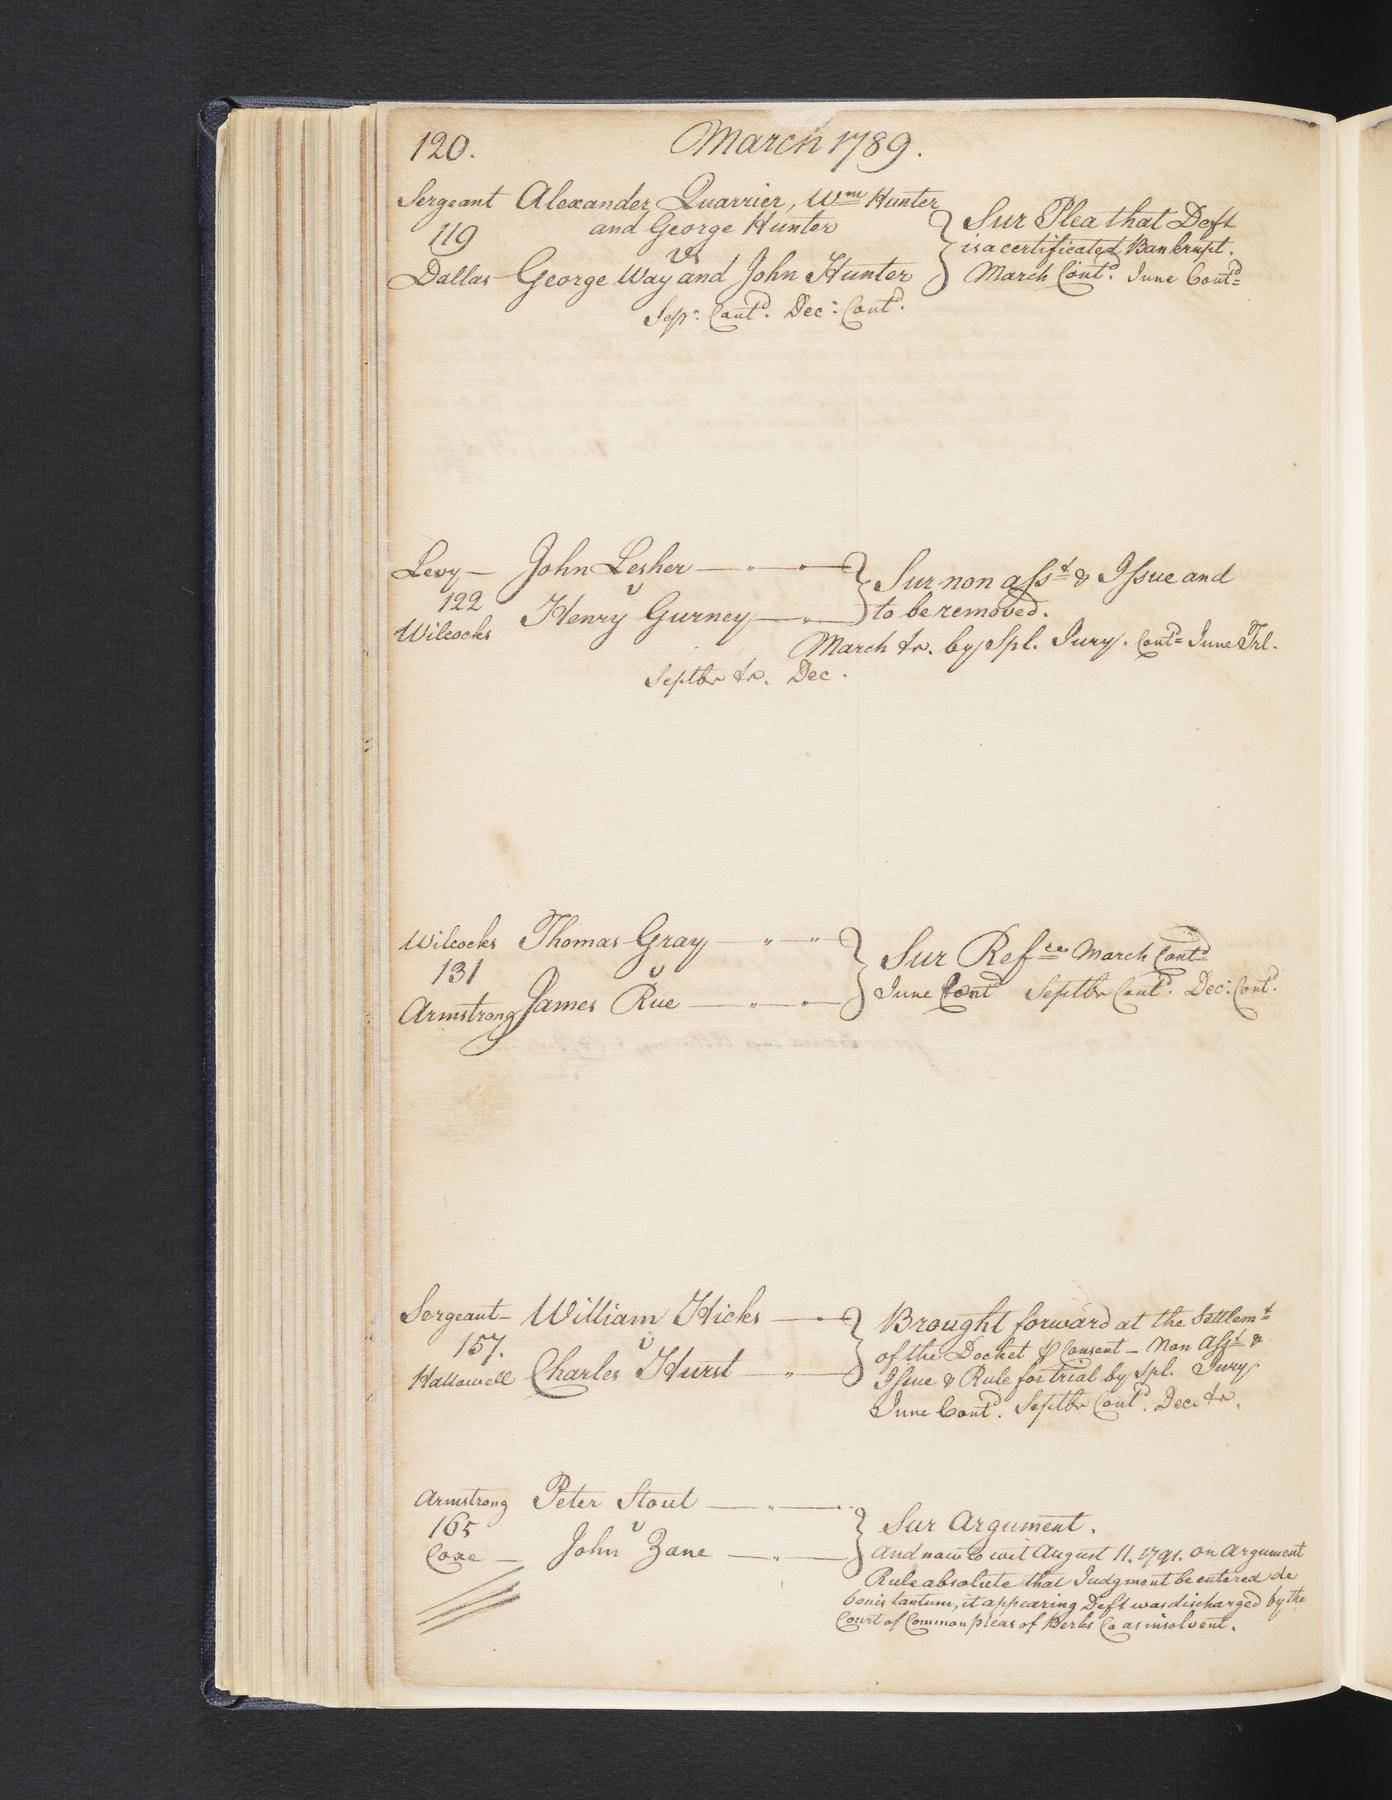 120. March 1789.
Sergeant Alexander Quarrier, Wm Hunter
and George Hunter
119
vs
Dallas George Way and John Hunter
Sur Plea that Deft
is a certificated Bankrupt.
March Contd. June Contd
Sepr: Contd. Dec: Contd.
Levy John Lesher
122 v
Wilcocks Henry Gurney
Sur non Asst & Issue and
to be removed.
March tr. by Spl. Jury. Contd June Trl.
Septbr tr. Dec.
Wilcocks Thomas Gray
131 v
Armstrong James Rue
Sur Refce March Contd
June Cont Septbr Contd. Dec: Contd.
Sergeant William Hicks
157. v
Hallowell Charles Hurst
Brought forward at the Settlemt
of the Docket Consent - Non Asst &
Issue & Rule for trial by Spl. Jury
June Contd. Septbr Contd. Dec. tr.
Armstrong Peter Stout
165 v
Coxe John Zane
Sur Argument.
And now to wit August 11. 1791. on Argument
Rule absolute that Judgment be entered de
bonis tantum, it appearing Deft was discharged by the
Court of Common pleas of Berks Co as insolvent.